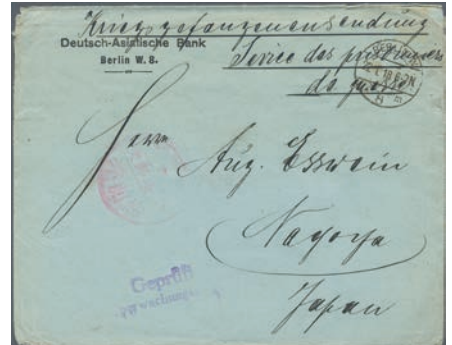 Kriegsgefangenensendung
Deutsch-Asiatische Bank
Berlin W. 8.
Service des prisonniers
de guerre
BERLIN
Herrn
Aug. Esswein
Nagoya
Japan
Geprüft